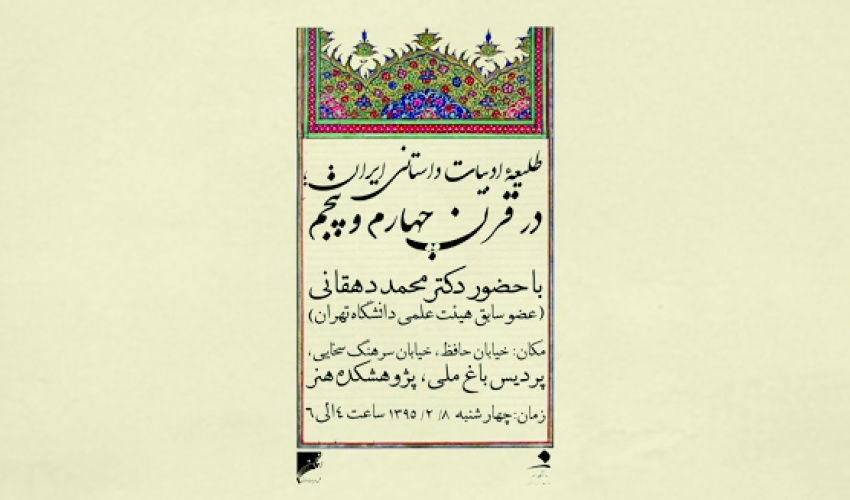 طلیعهٔ ادبیات داستانی ایران؛
در قرن چهارم و پنجم
با حضور دکتر محمد دهقانی
(عضو سابق هیئت علمی دانشگاه تهران)
مکان: خیابان حافظ، خیابان سرهنگ سخایی،
پردیس باغ ملی، پژوهشکده هنر
زمان: چهارشنبه ۸/ ۲/ ۱۳۹۵ ساعت ۴ الی ۶